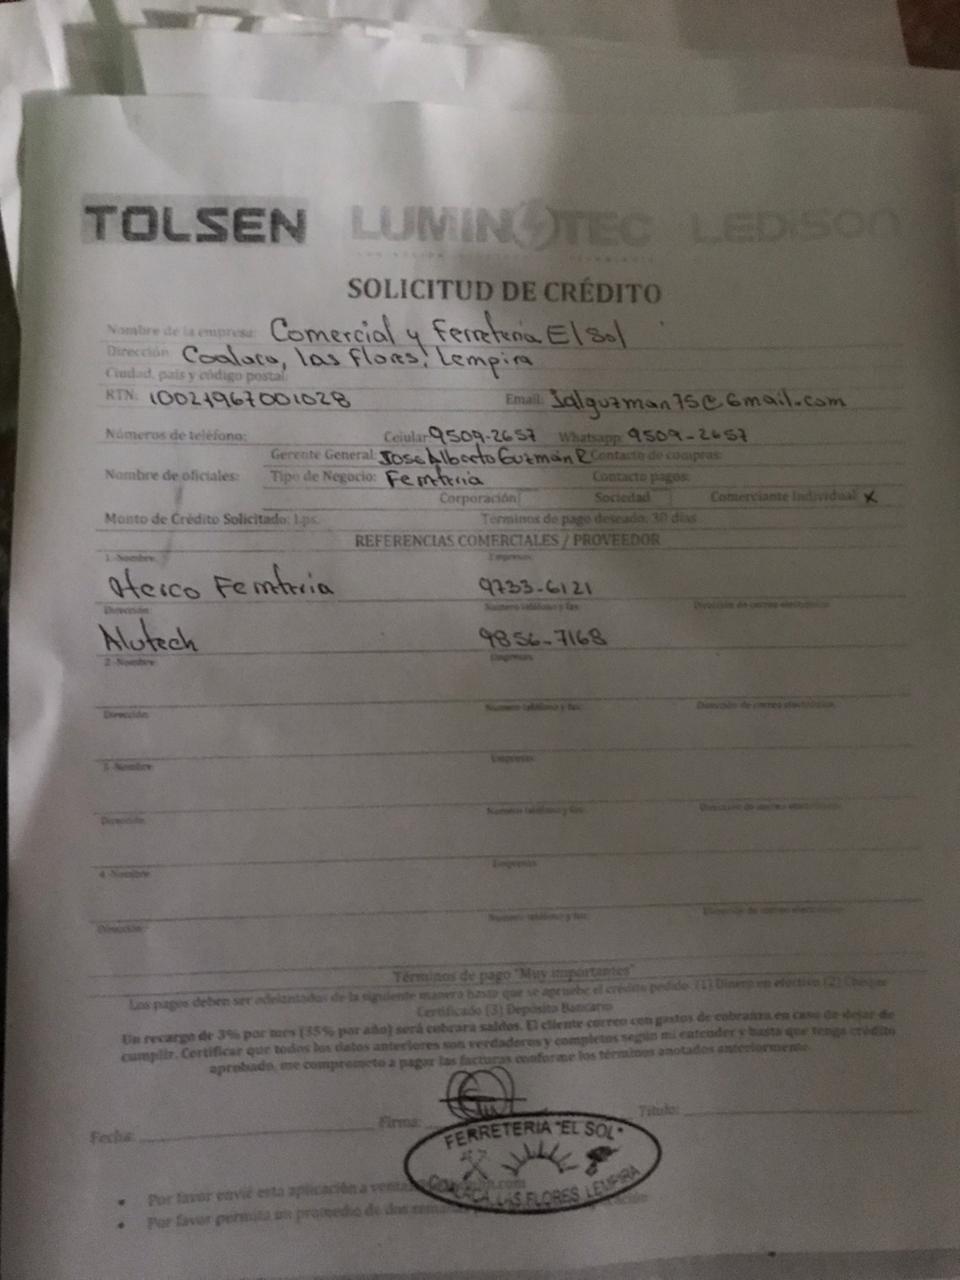 TOLSEN LUMINOTEC LEDISON
SOLICITUD DE CRÉDITO
Nombre de la empresa: Comercial y Ferreteria El Sol
Dirección: Coalaca, las flores, Lempira
Ciudad, país y código postal:
RTN: 10021967001028 Email: Jalguzman75@Gmail.com
Números de teléfono: Celular 9509-2657 Whatsapp: 9509-2657
Gerente General: Jose Alberto Guzmán R Contacto de compras:
Nombre de oficiales: Tipo de Negocio: Ferreteria Contacto pagos:
Corporación Sociedad Comerciante Individual X
Monto de Crédito Solicitado: Lps. Términos de pago deseado: 30 días
REFERENCIAS COMERCIALES / PROVEEDOR
1.-Nombre: Empresa:
Ferreteria 9733-6121
Dirección: Número teléfono y fax Dirección de correo electrónico
Alutech 9856-7168
2.-Nombre: Empresa:
Dirección: Número teléfono y fax: Dirección de correo electrónico:
3.-Nombre: Empresa:
Dirección: Número teléfono y fax: Dirección de correo electrónico:
4.-Nombre: Empresa:
Dirección: Número teléfono y fax: Dirección de correo electrónico:
Términos de pago "Muy importantes"
Los pagos deben ser adelantados de la siguiente manera hasta que se apruebe el crédito pedido. (1) Dinero en efectivo (2) Cheque
Certificado (3) Depósito Bancario
Un recargo de 3% por mes (35% por año) será cobrara saldos. El cliente correo con gastos de cobranza en caso de dejar de
cumplir. Certificar que todos los datos anteriores son verdaderos y completos según mi entender y hasta que tenga crédito
aprobado, me comprometo a pagar las facturas conforme los términos anotados anteriormente.
Fecha: Firma: Titulo:
FERRETERIA "EL SOL"
COALACA, LAS FLORES, LEMPIRA
Por favor envié esta aplicación a
Por favor permita un promedio de dos